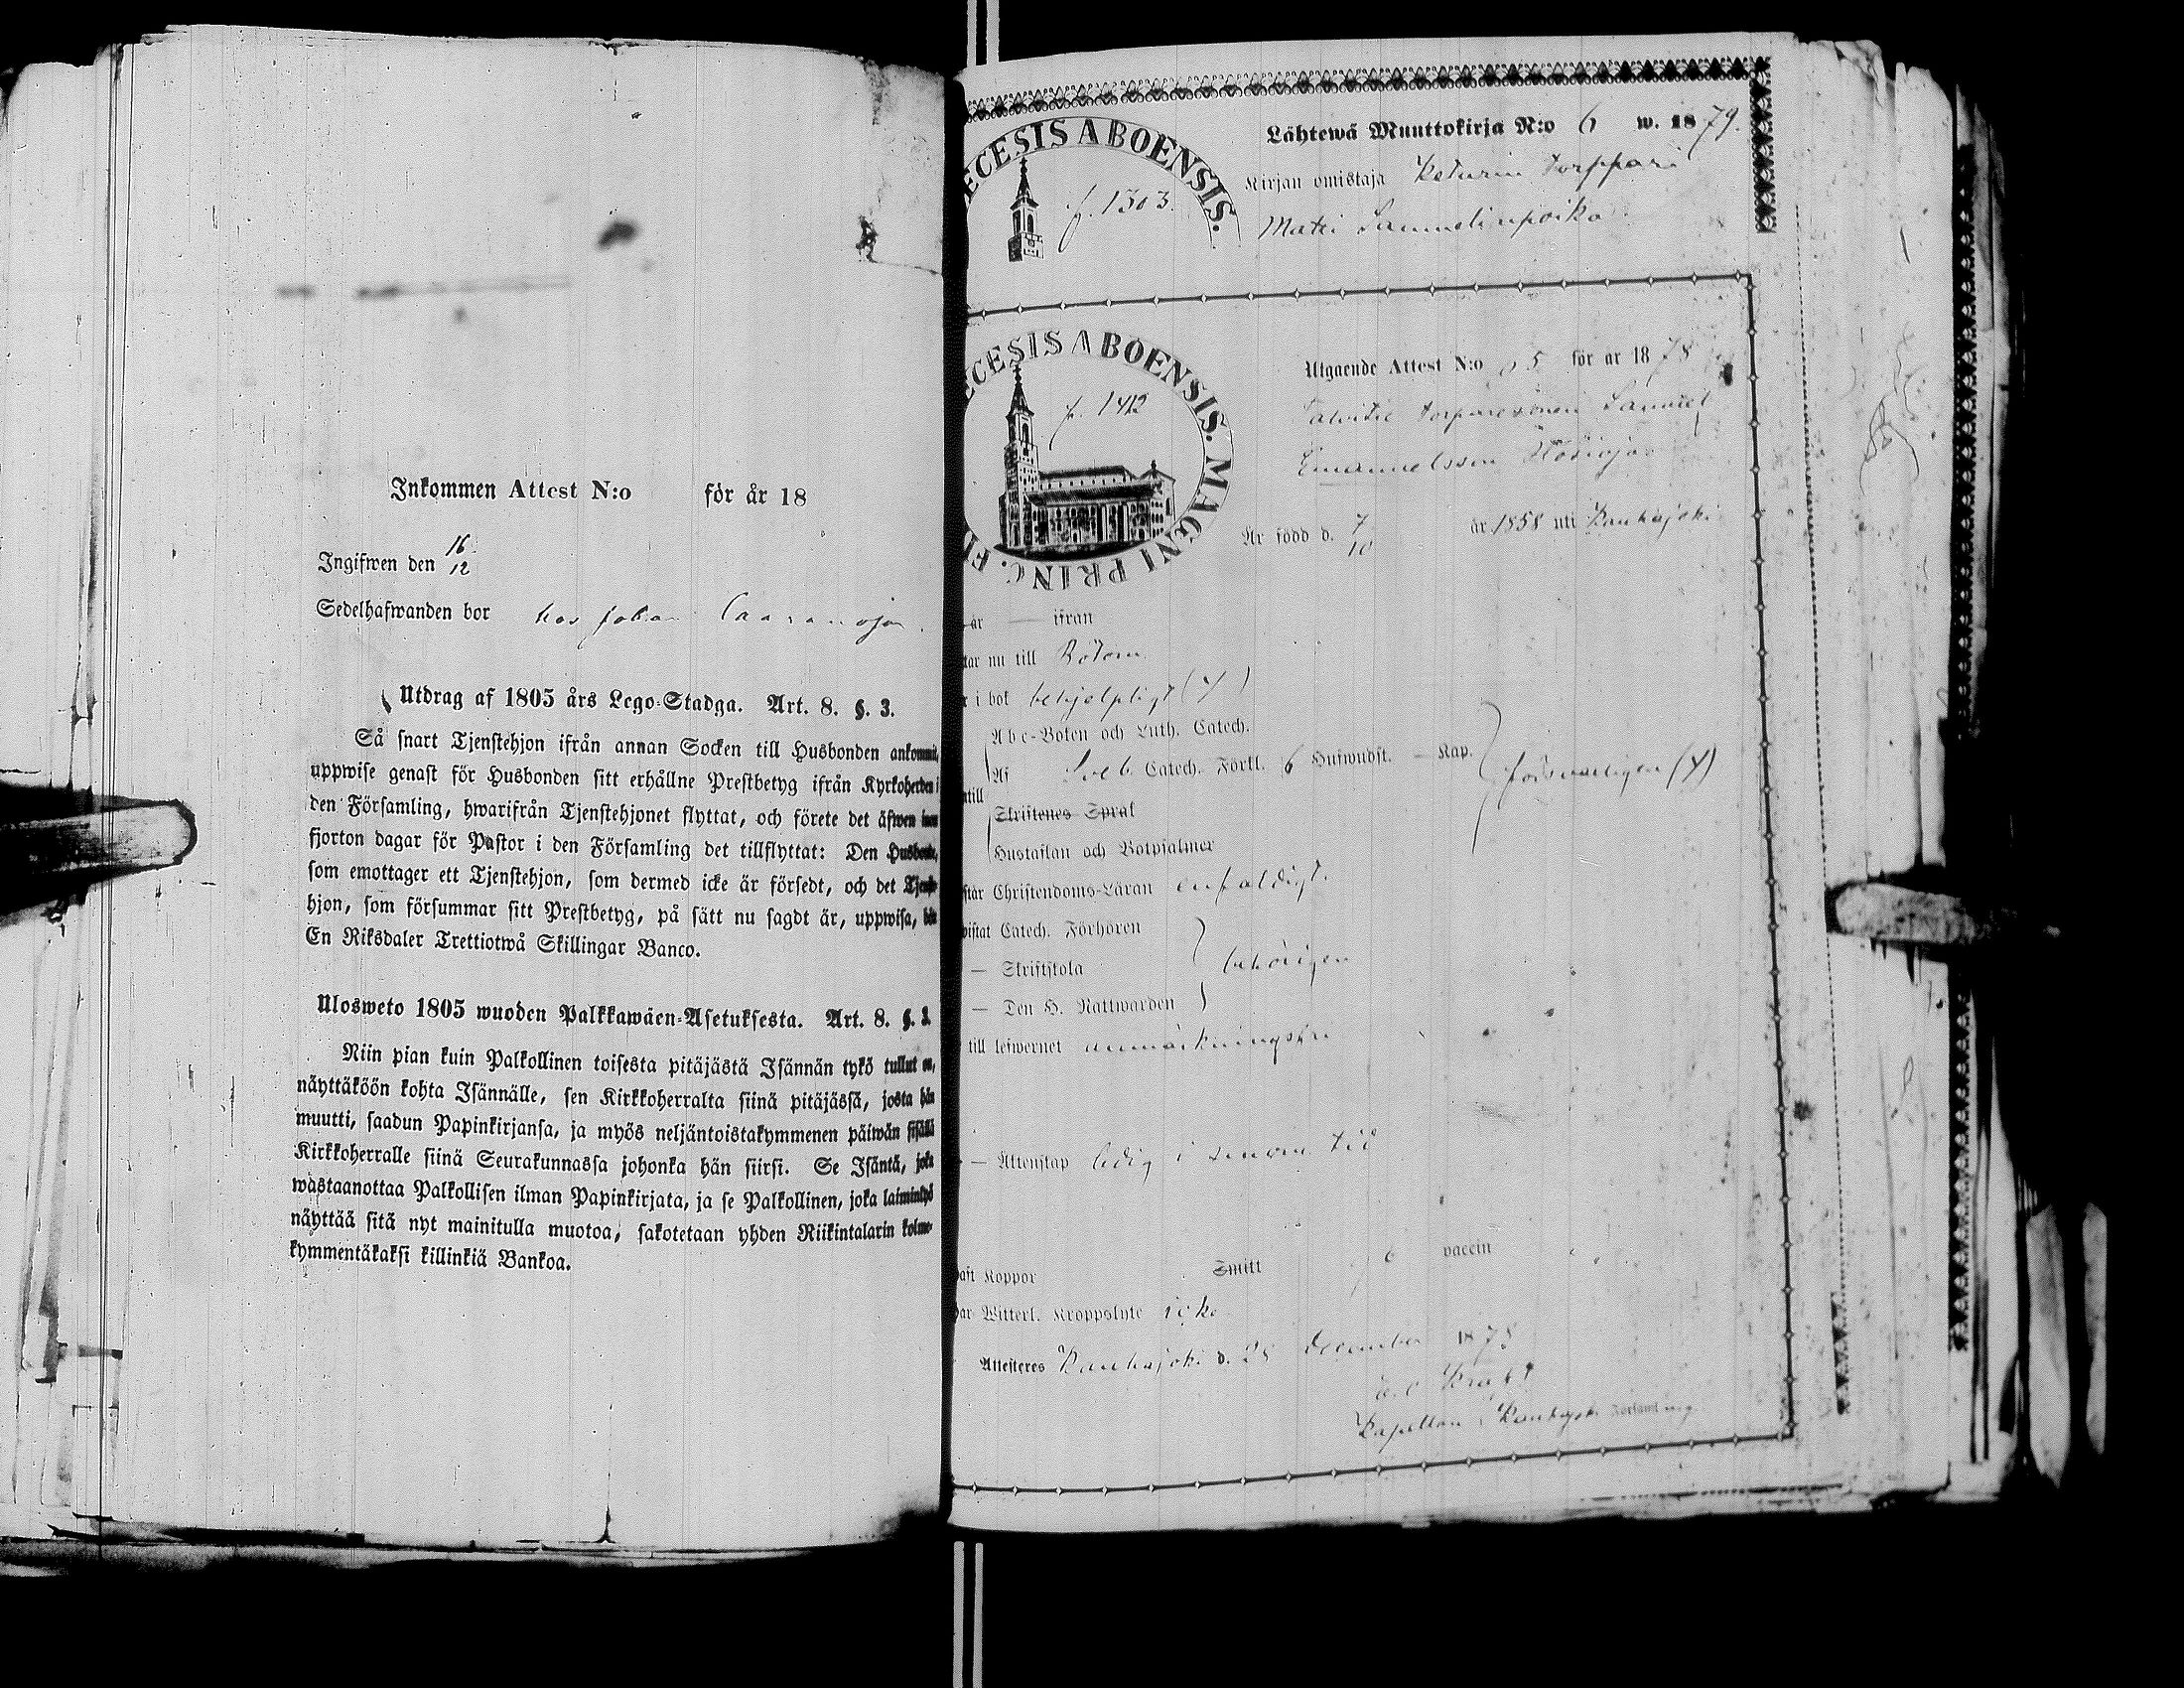 Inkommen Attest N:o för år 18
Ingifwen den 16/12
Sedelhafwanden bor hos Johan
Utdrag af 1805 års Lego-Stadga. Art. 8. §. 3.
Så snart Tjenstehjon ifrån annan Socken till Husbonden ankommit,
uppwise genast för Husbonden sitt erhållne Prestbetyg ifrån Kyrkoherden i
den Församling, hwarifrån Tjenstehjonet flyttat, och förete det äfwen inom
fjorton dagar för Pastor i den Församling det tillflyttat: Den Husbonde,
som emottager ett Tjenstehjon, som dermed icke är försedt, och det Tjenste-
hjon, som försummar sitt Prestbetyg, på sätt nu sagdt är, uppwisa, böte
En Riksdaler Trettiotwå Skillingar Banco.
Ulosweto 1805 wuoden Palkkawäen-Asetuksesta. Art. 8. §. 3.
Niin pian kuin Palkollinen toisesta pitäjästä Isännän tykö tullut on,
näyttäköön kohta Isännälle, sen Kirkkoherralta siinä pitäjässä, josta hän
muutti, saadun Papinkirjansa, ja myös neljäntoistakymmenen päiwän sisällä
Kirkkoherralle siinä Seurakunnassa johonka hän siirsi. Se Isäntä, joka
wastaanottaa Palkollisen ilman Papinkirjata, ja se Palkollinen, joka laiminlyö
näyttää sitä nyt mainitulla muotoa, sakotetaan yhden Riikintalarin kolme-
kymmentäkaksi killinkiä Bankoa.
ECESIS ABOENSIS.
f. 1303.
Lähtewä Muuttokirja N:o 6 w. 1879.
Kirjan omistaja Keturin torppari
Matti Samuelinpoika
ECESIS ABOENSIS. MAGNI PRINC. FI
f. 1412
Utgaende Attest N:o 5 för år 1878
torparesonen Samuel
Emanuelsson
Är född d. 7/10 år 1858 uti Kauhajoki
år — ifrån
tar nu till Bötom
r i bok behjelpligt (4)
Abc-Boken och Luth. Catech.
Af Sveb. Catech. Förkl. 6 Hufwudst. — Kap.
försvarligen (4)
ntill
Skriftenes Språk
Hustaflan och Botpsalmer
står Christendoms-Läran enfaldigt.
vistat Catech. Förhören
— Skriftskola
behörigen
— Den H. Nattwarden
till lefwernet anmärkningsfri
— Äktenskap ledig i senare tid
aft Koppor Smitt vaccin
har Witterl. Kroppslyte icke
Attesteres Kauhajoki d. 28 December 1878
Kapellan i Kauhajoki Församling